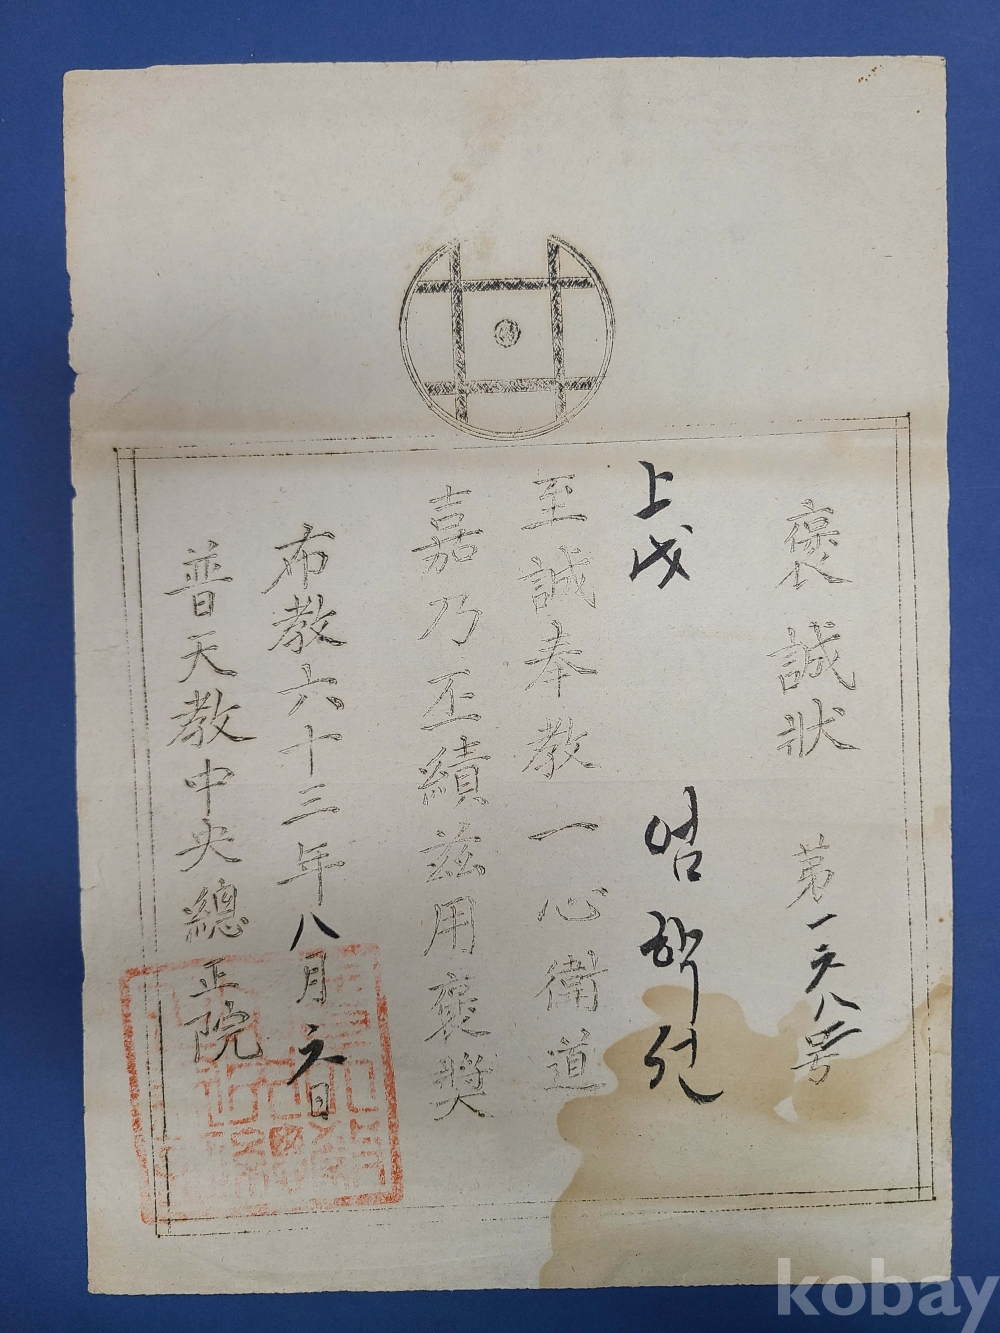 褒誠狀 第一六八号
上戊 엄학선
至誠奉教一心衛道
嘉乃丕績兹用褒奬
布教六十三年八月六日
普天教中央總正院
kobay